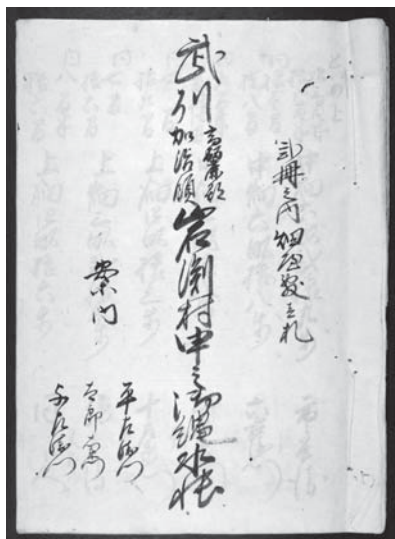 弐冊之内畑屋敷
武州
高麗郡
加治領
岩渕村申之御縄水帳
案内
平左衛門
太郎
与左衛門